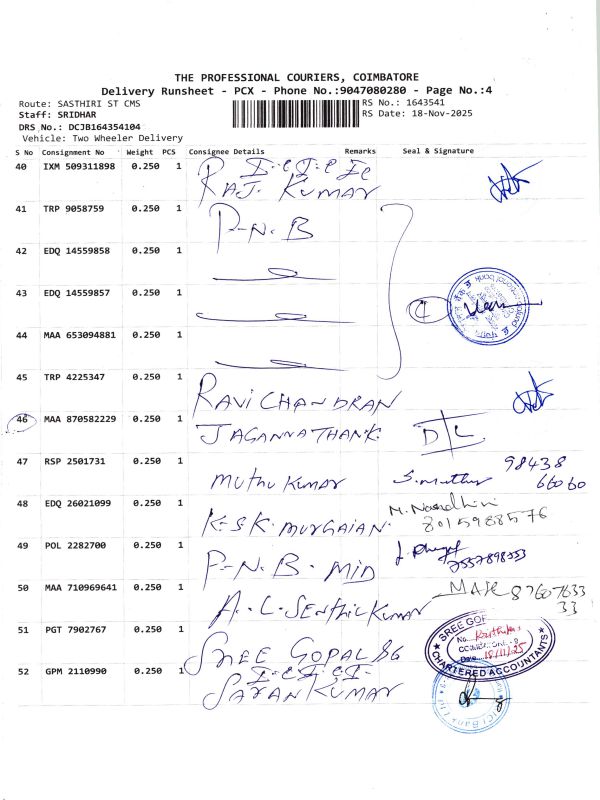 THE PROFESSIONAL COURIERS, COIMBATORE
Delivery Runsheet - PCX - Phone No.:9047080280 - Page No.:4
Route: SASTHIRI ST CMS
RS No.: 1643541
Staff: SRIDHAR
RS Date: 18-Nov-2025
DRS No.: DCJB164354104
Vehicle: Two Wheeler Delivery
S No Consignment No Weight PCS Consignee Details Remarks Seal & Signature
40 IXM 509311898 0.250 1 RAJ. KUMAR
41 TRP 9058759 0.250 1 P-N.B
42 EDQ 14559858 0.250 1
43 EDQ 14559857 0.250 1 4
44 MAA 653094881 0.250 1
45 TRP 4225347 0.250 1 RAVICHANDRAN
46 MAA 870582229 0.250 1 JAGANNATHAN.K. D/L
47 RSP 2501731 0.250 1 MUTHU KUMAR S. 98438 66060
48 EDQ 26021099 0.250 1 K.S.K. MURGAIAN. M. Nandhini 8015988576
49 POL 2282700 0.250 1 P-N.B. MID 7557898333
50 MAA 710969641 0.250 1 A.L.SENTHIL KUMAR 87607633 33
51 PGT 7902767 0.250 1 SREE GOPAL &G
SREE GOP
CHARTERED ACCOUNTANTS
No. Karthika
Date 18/11/25
52 GPM 2110990 0.250 1 SARAN KUMAR